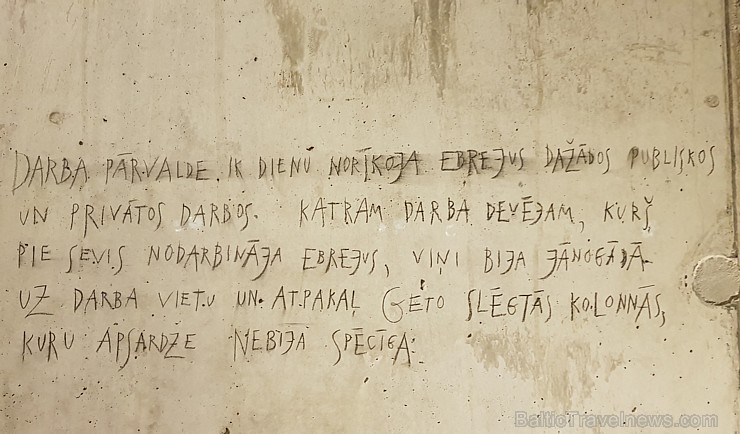 DARBA PĀRVALDE IK DIENU NORĪKOJA EBREJUS DAŽĀDOS PUBLISKOS
UN PRIVĀTOS DARBOS. KATRAM DARBA DEVĒJAM, KURŠ
PIE SEVIS NODARBINĀJA EBREJUS, VIŅI BIJA JĀNOGĀDĀ
UZ DARBA VIETU UN ATPAKAĻ GETO SLĒGTĀS KOLONNĀS,
KURU APSARDZE NEBIJA SPĒCĪGA.
BalticTravelnews.com